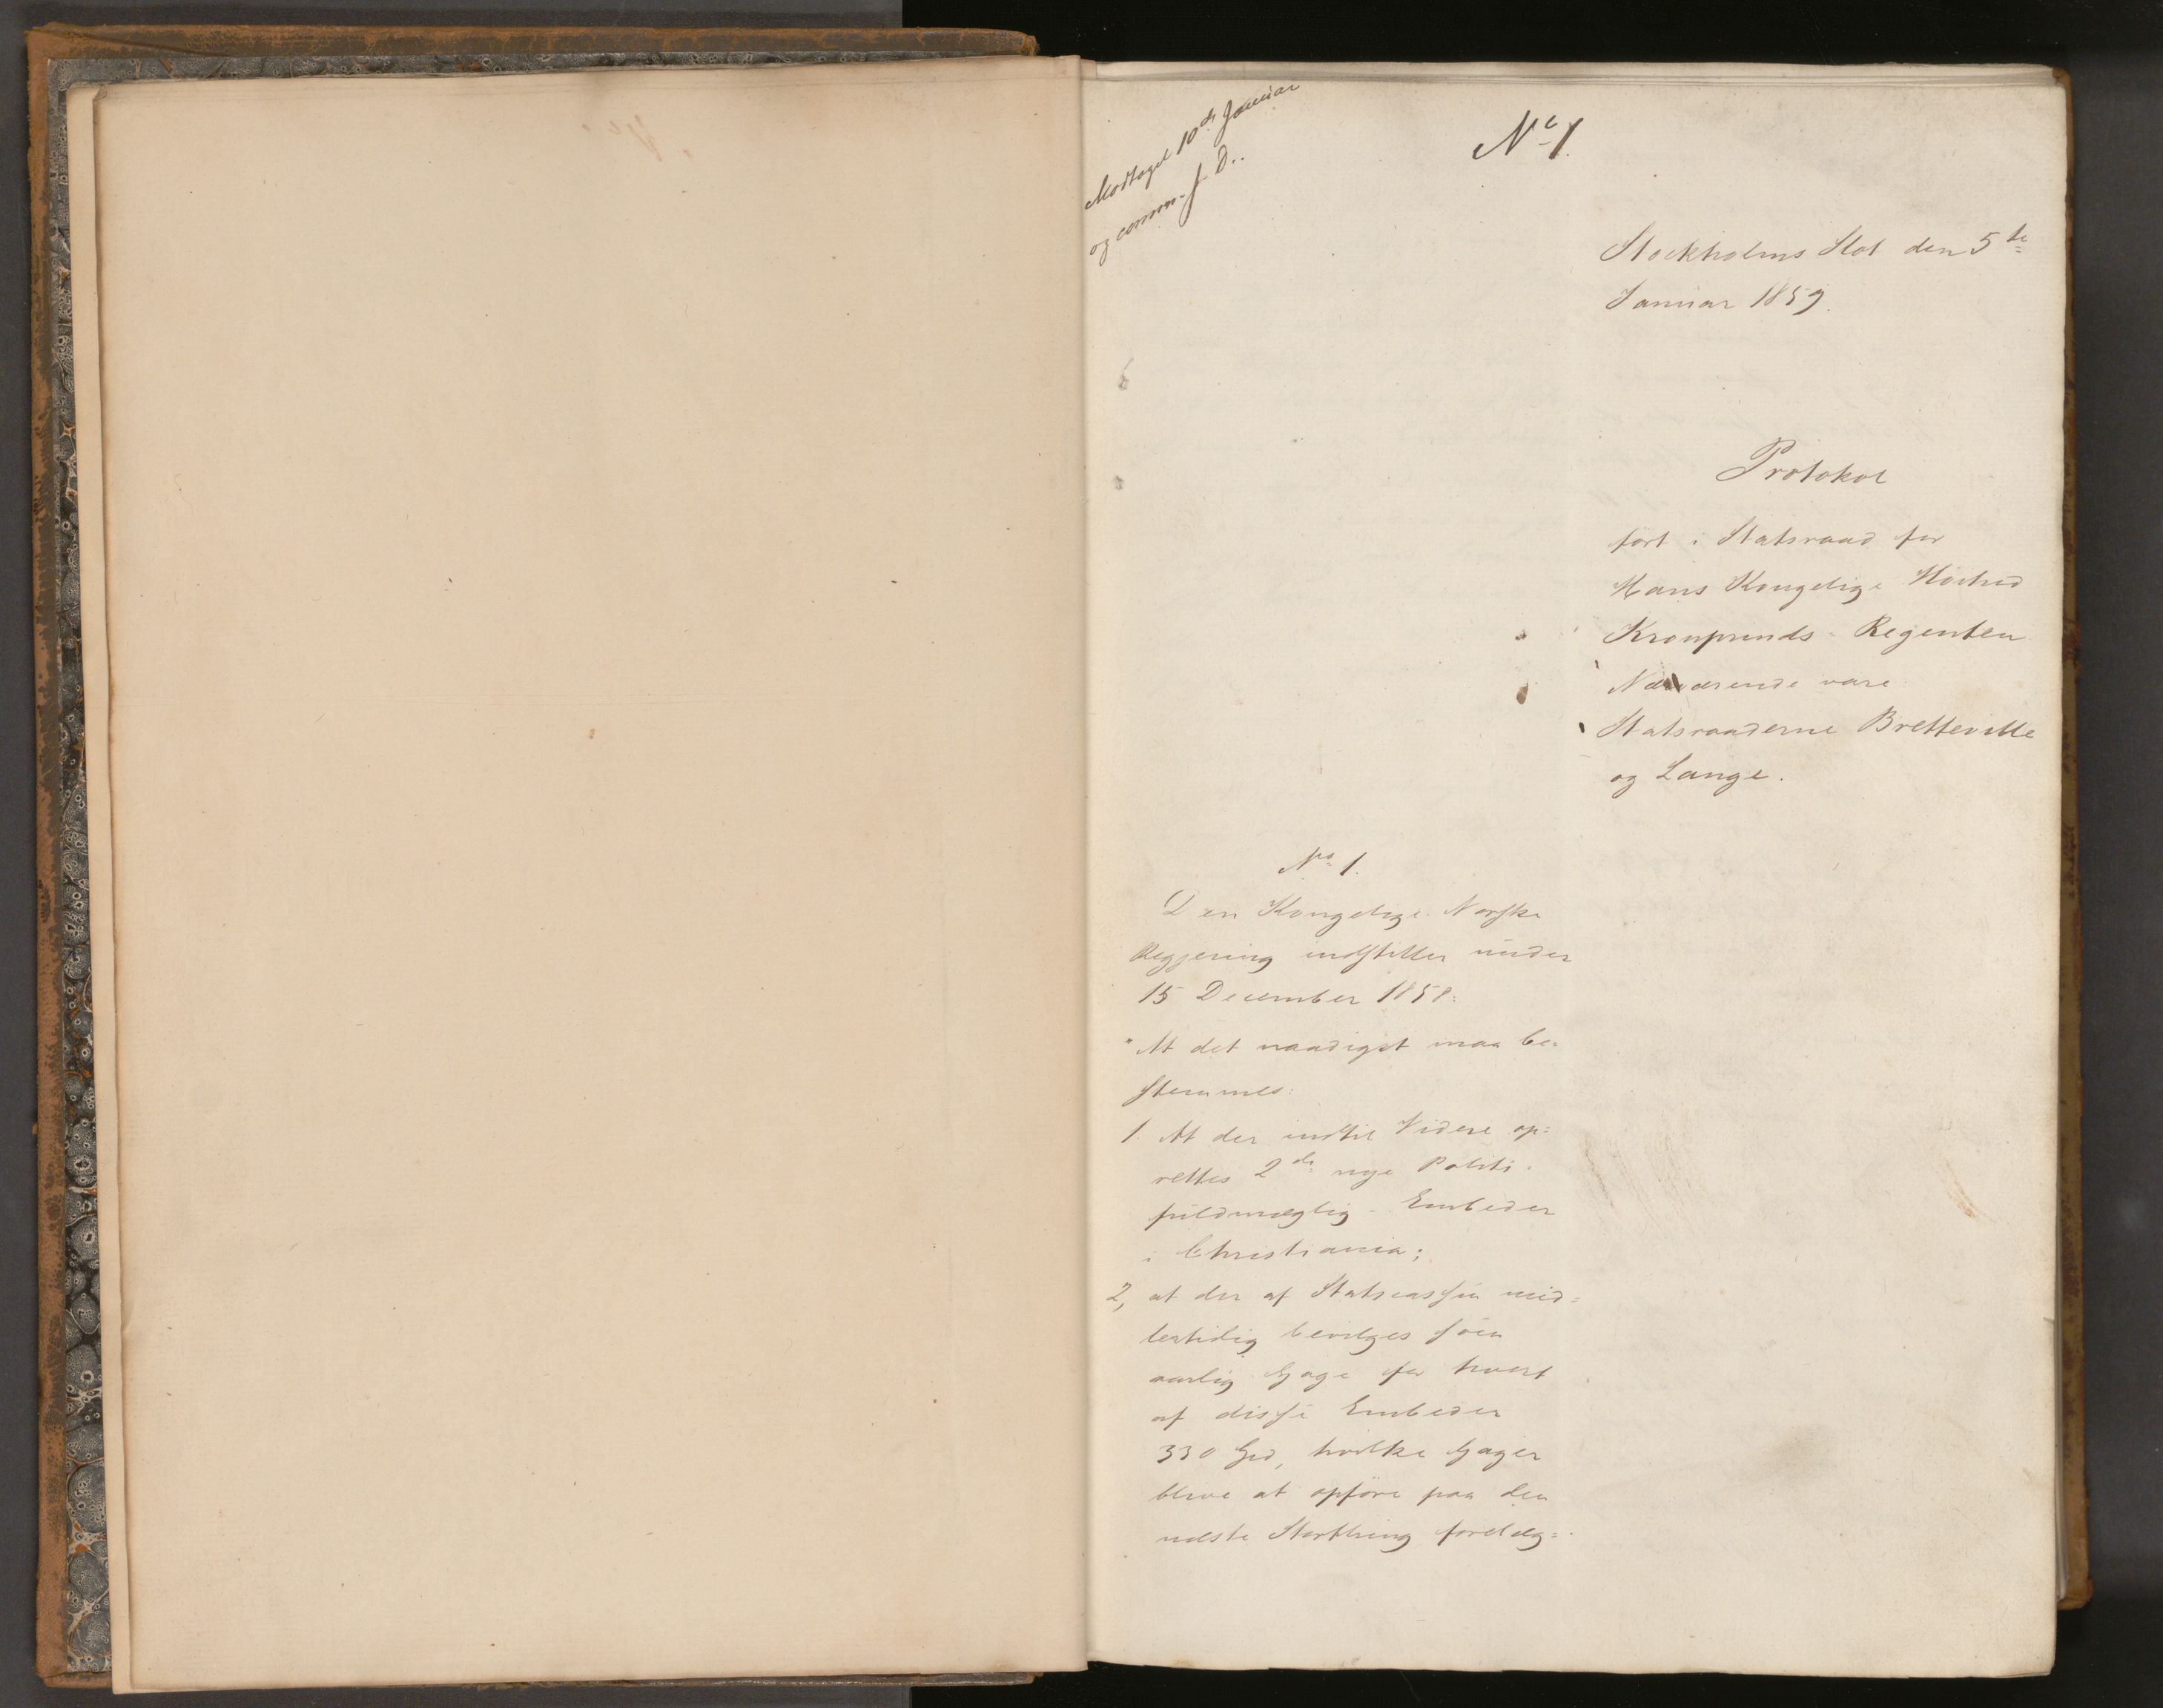 Modtaget 10de Januar
og comm. J. D.
No 1.
Stockholms Slot den 5te
Januar 1859.
Protokol
ført i Statsraad for
Hans Kongelige Höihed
Kronprinds-Regenten
Nærværende vare
Statsraaderne Bretteville
og Lange.
No 1.
Den Kongelige Norske
Regjering indstiller under
15 December 1858:
"At det naadigst maa be-
stemmes:
1. At der indtil Videre op=
rettes 2de nye Politi-
fuldmægtig-Embeder
i Christiania;
2, at der af Statscassen mid=
lertidig bevilges som
aarlig Gage for hvert
af disse Embeder
330 Spd, hvilke Gager
blive at opføre paa den
næste Storthing forelæg=